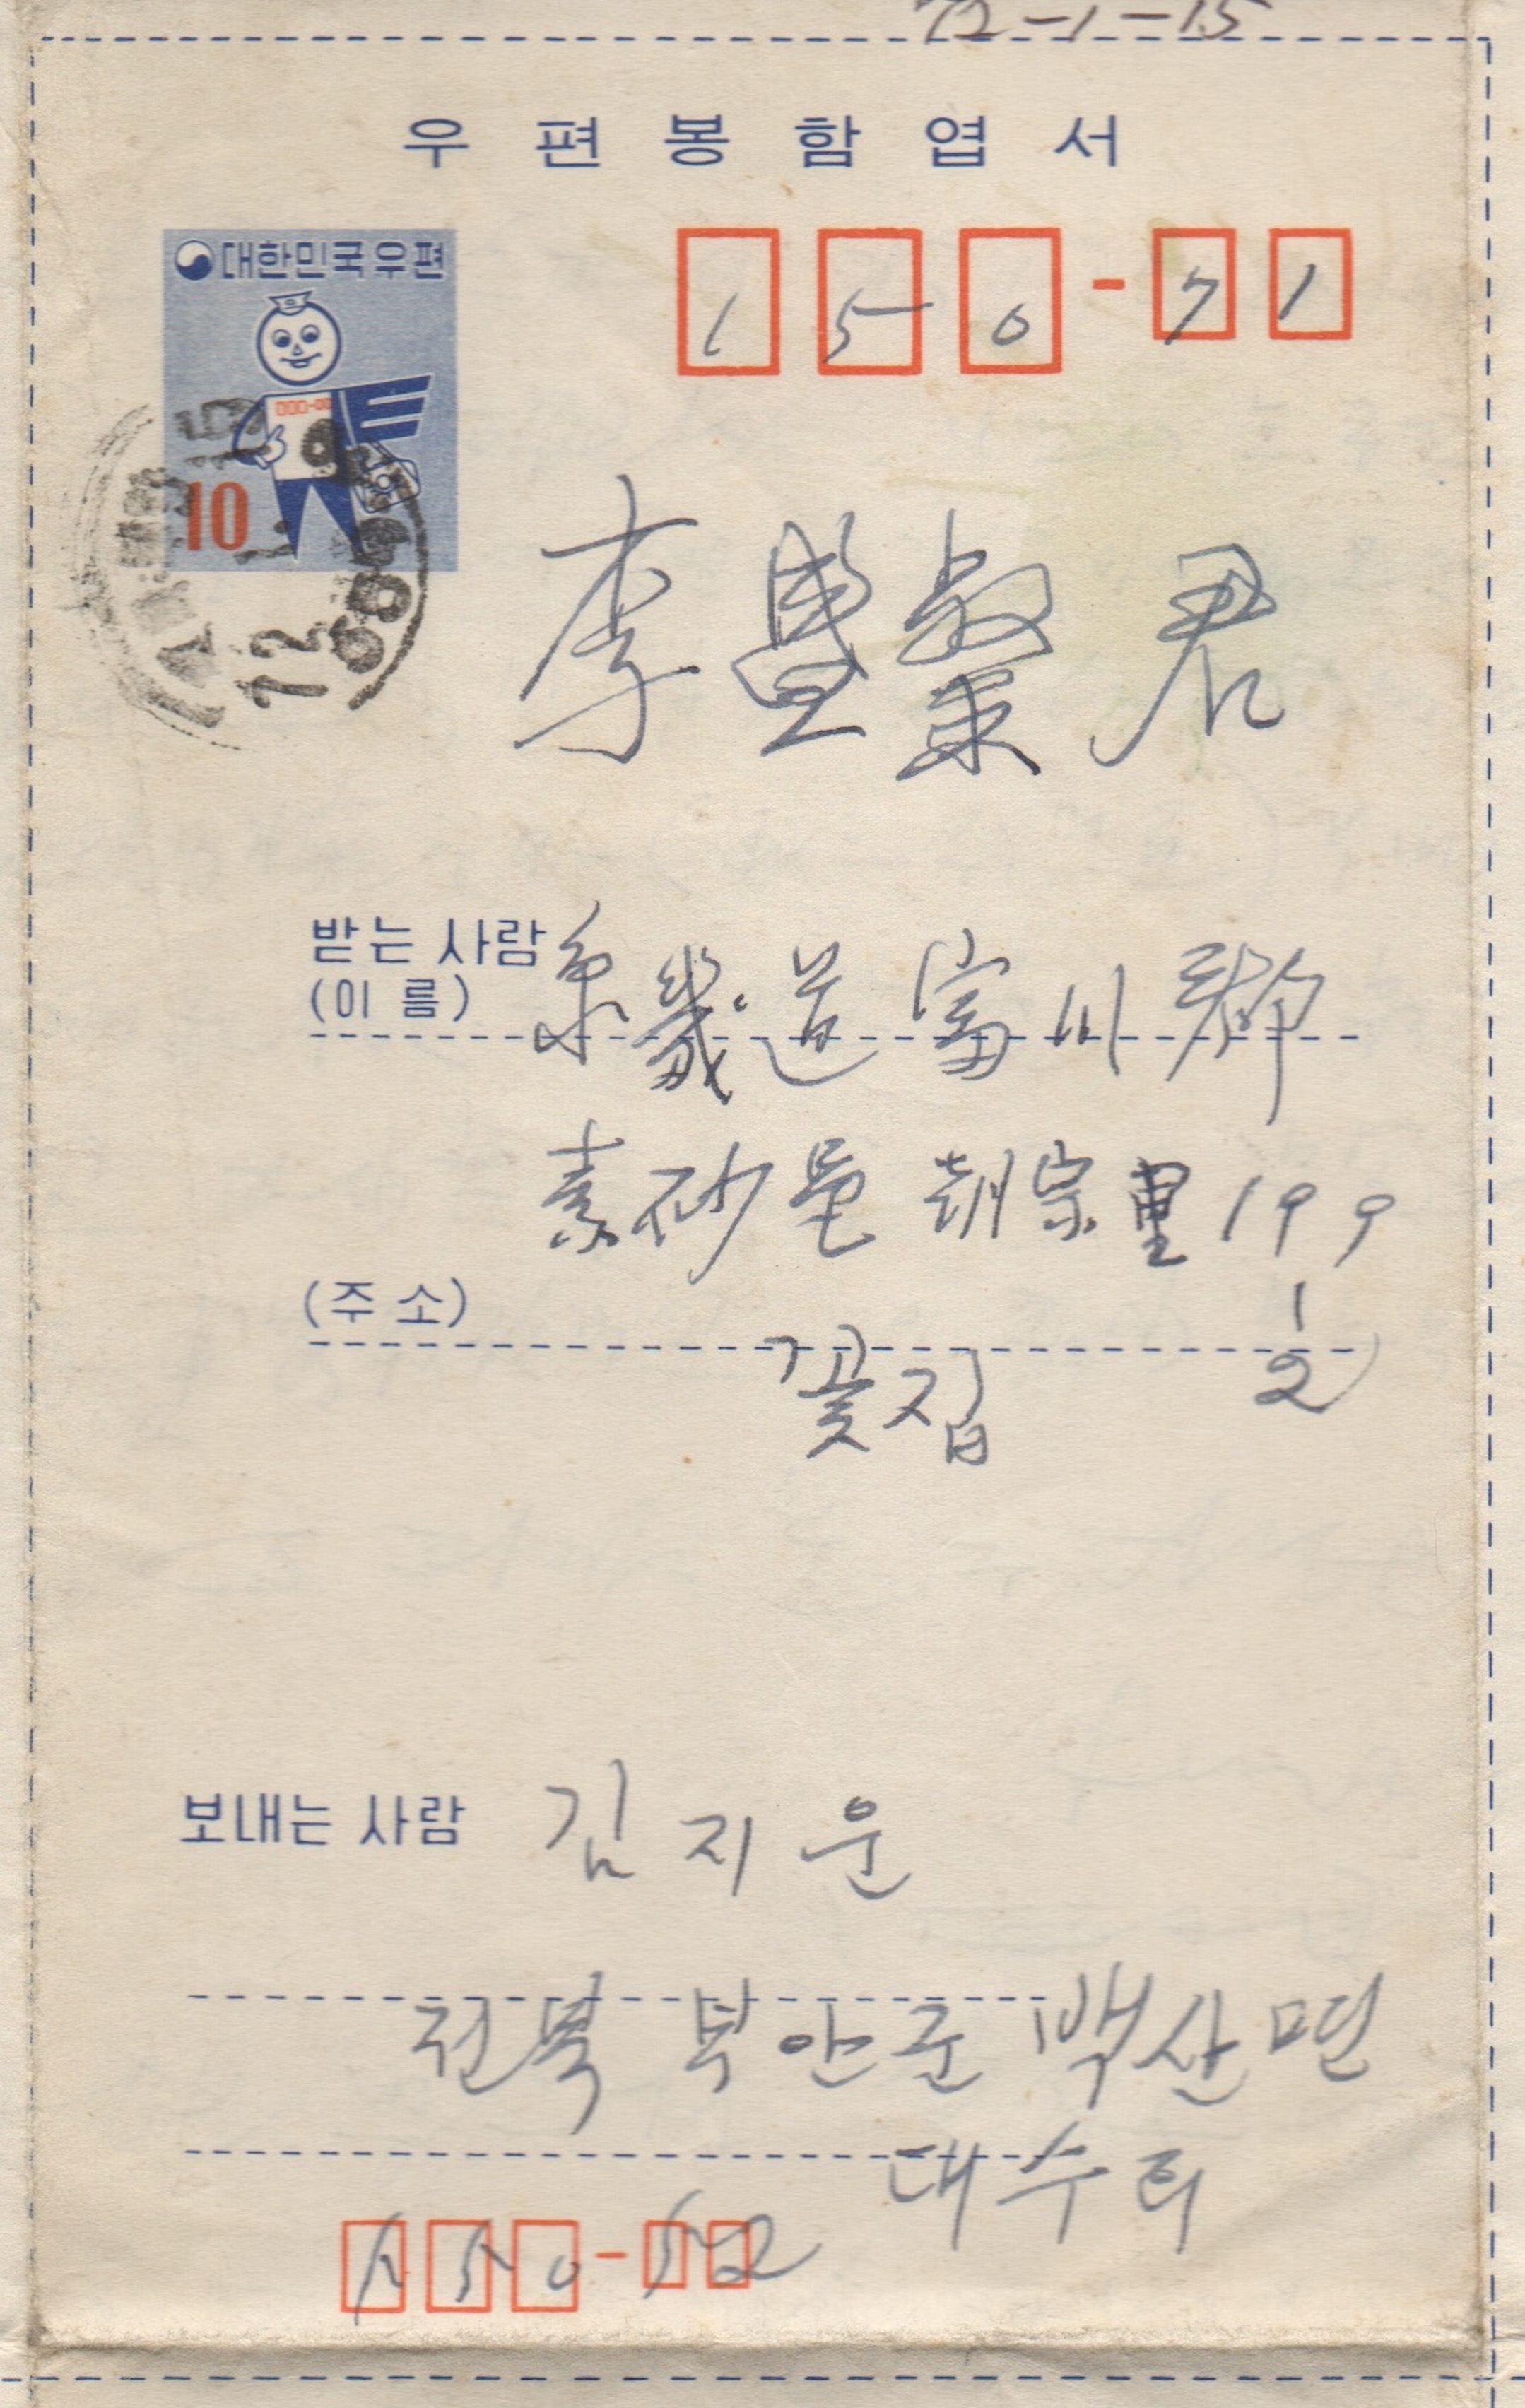 72-1-15
우편봉함엽서
대한민국우편
10
150-71
李 君
받는 사람 京畿道 富川郡
(이 름)
素砂邑 朝宗里 199
(주 소)
1
2
꽃집
보내는 사람 김지운
전북 부안군 백산면
대수리
550-52